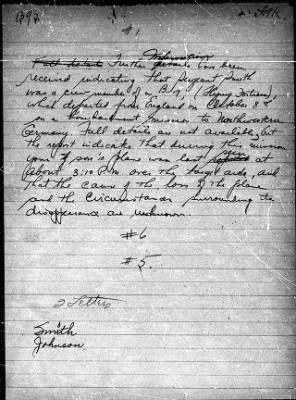 1392
#1
Full details Further details Information has been
received indicating that Sergeant Smith
was a crew member of a B-17 (Flying Fortress),
which departed from England on October 8th
on a bombardment mission to Northwestern
Germany. Full details are not available, but
the report indicates that during this mission
your son's plane was last seen at
about 3:10 P.M. over the target area, and
that the cause of the loss of the plane
and the circumstances surrounding its
disappearance are unknown.
#6
#5.
2 Letters
Smith
Johnson